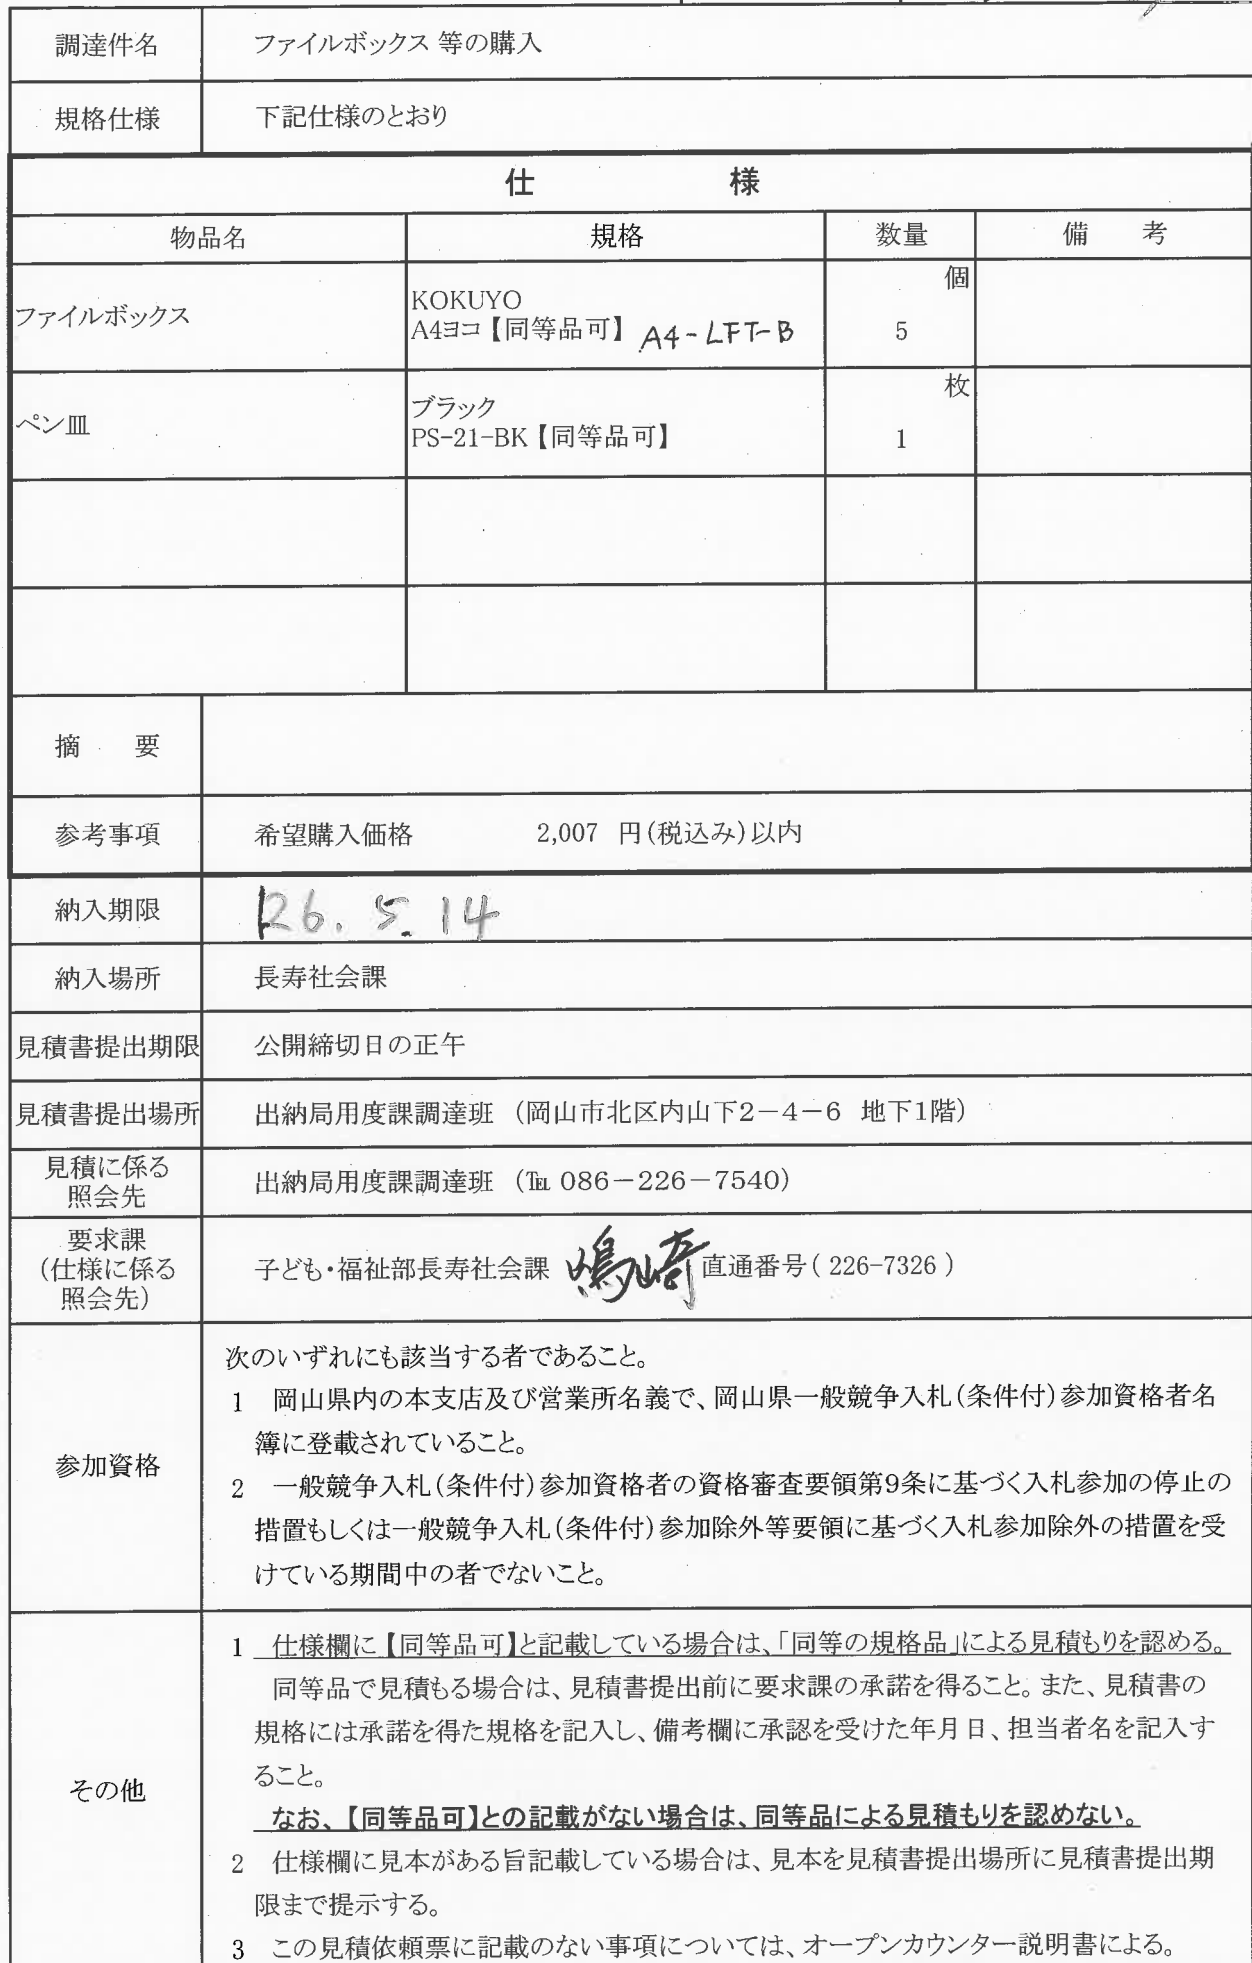 調達件名 ファイルボックス 等の購入
規格仕様 下記仕様のとおり
仕 様
物品名 規格 数量 備 考
ファイルボックス KOKUYO 個
A4ヨコ【同等品可】 A4-LFT-B 5
ペン皿 ブラック 枚
PS-21-BK【同等品可】 1
摘 要
参考事項 希望購入価格 2,007 円(税込み)以内
納入期限 R6. 5. 14
納入場所 長寿社会課
見積書提出期限 公開締切日の正午
見積書提出場所 出納局用度課調達班 (岡山市北区内山下2-4-6 地下1階)
見積に係る
照会先 出納局用度課調達班 (℡ 086-226-7540)
要求課
(仕様に係る
照会先) 子ども・福祉部長寿社会課 嶋崎 直通番号( 226-7326 )
参加資格
次のいずれにも該当する者であること。
1 岡山県内の本支店及び営業所名義で、岡山県一般競争入札(条件付)参加資格者名
簿に登載されていること。
2 一般競争入札(条件付)参加資格者の資格審査要領第9条に基づく入札参加の停止の
措置もしくは一般競争入札(条件付)参加除外等要領に基づく入札参加除外の措置を受
けている期間中の者でないこと。
その他
1 仕様欄に【同等品可】と記載している場合は、「同等の規格品」による見積もりを認める。
同等品で見積もる場合は、見積書提出前に要求課の承諾を得ること。また、見積書の
規格には承諾を得た規格を記入し、備考欄に承認を受けた年月日、担当者名を記入す
ること。
なお、【同等品可】との記載がない場合は、同等品による見積もりを認めない。
2 仕様欄に見本がある旨記載している場合は、見本を見積書提出場所に見積書提出期
限まで提示する。
3 この見積依頼票に記載のない事項については、オープンカウンター説明書による。